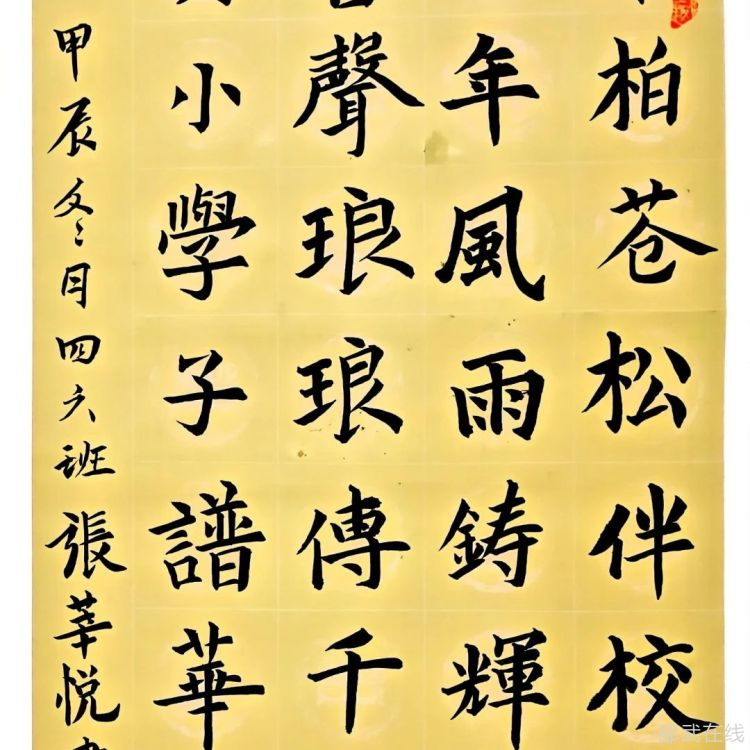 柏苍松伴校
年風雨鋳輝
聲琅琅傳千
小學子譜華
甲辰冬月四六班張莘悦
武在线